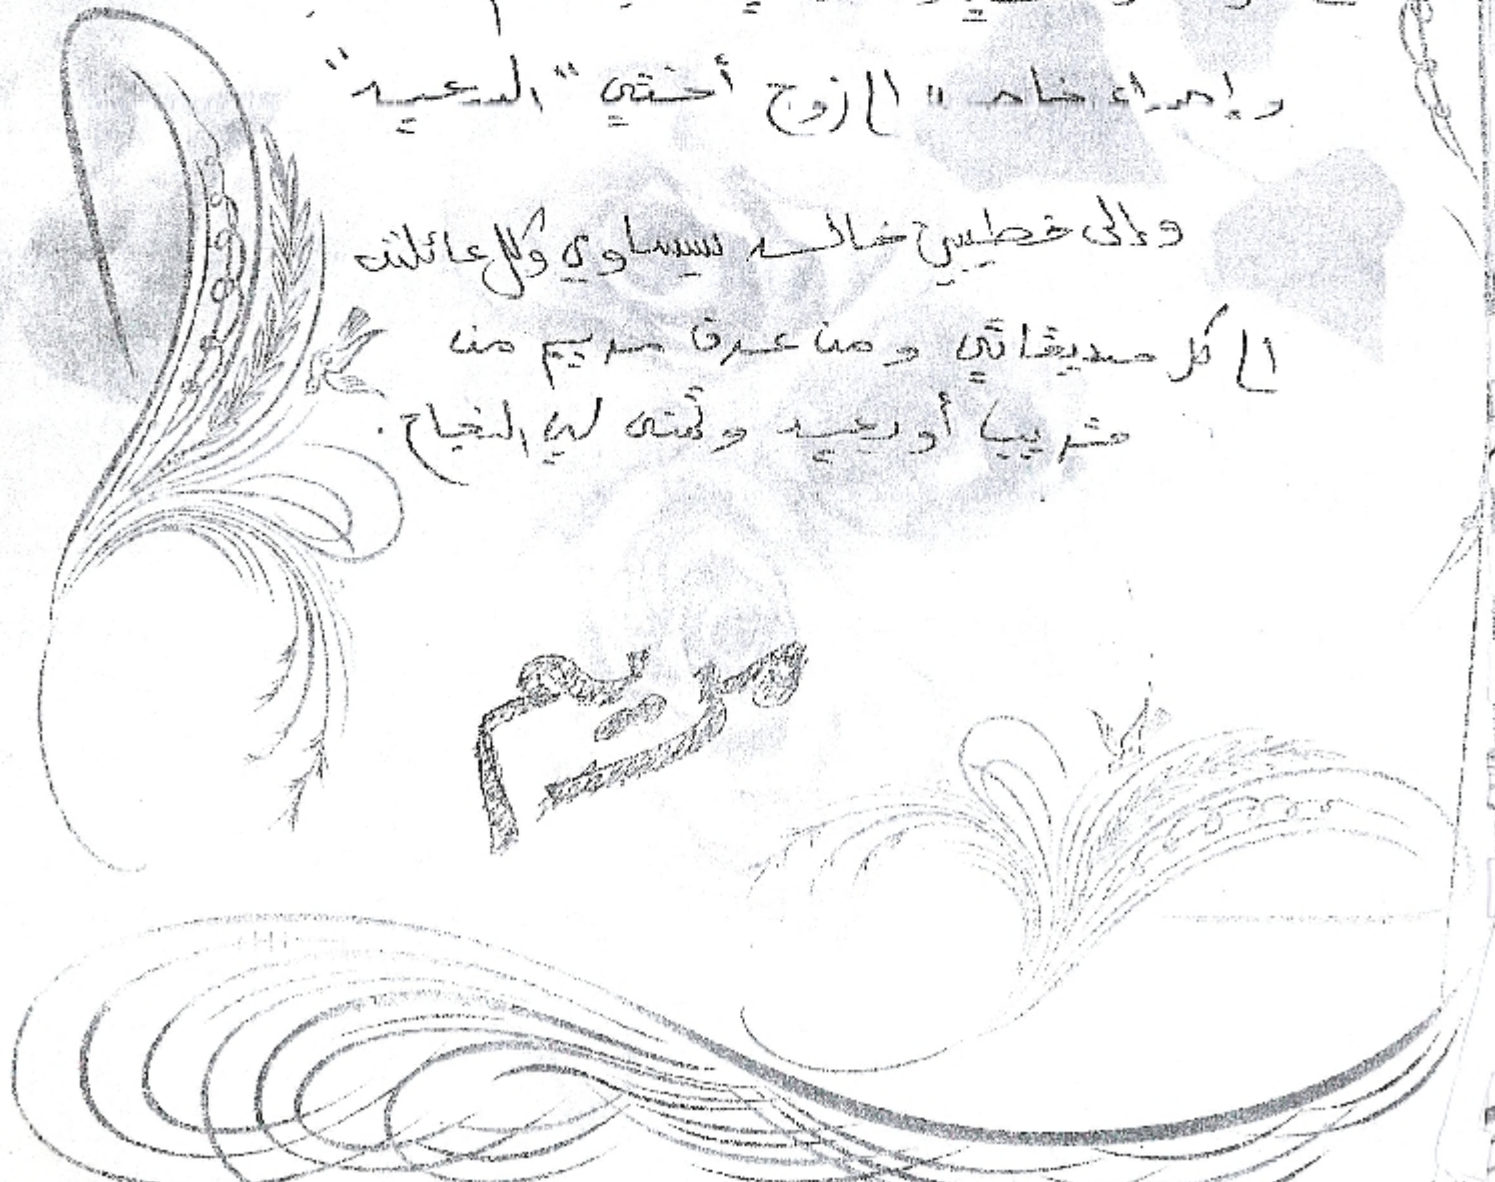 وإهداء خاص إلى زوج أختي "السعيد"
وإلى خطيبي خالد سيساوي وكل عائلته
إلى كل صديقاتي ومن عرف مريم من
قريب أو بعيد وتمنى لي النجاح.
مريم